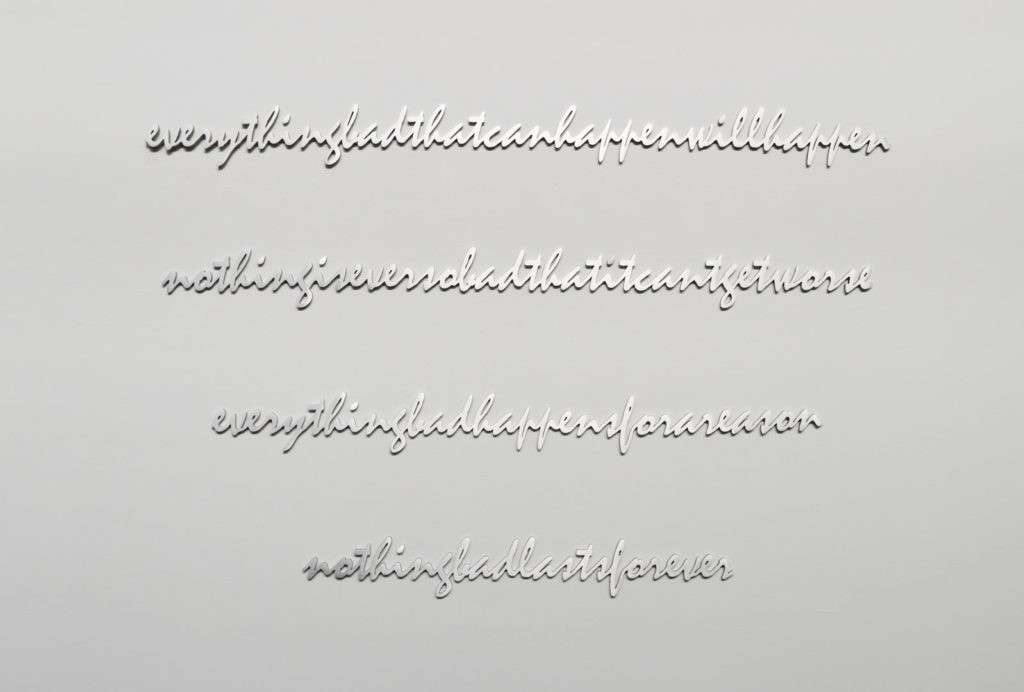 everythingbadthatcanhappenwillhappen
nothingiseversobadthatitcantgetworse
everythingbadhappensforareason
nothingbadlastsforever